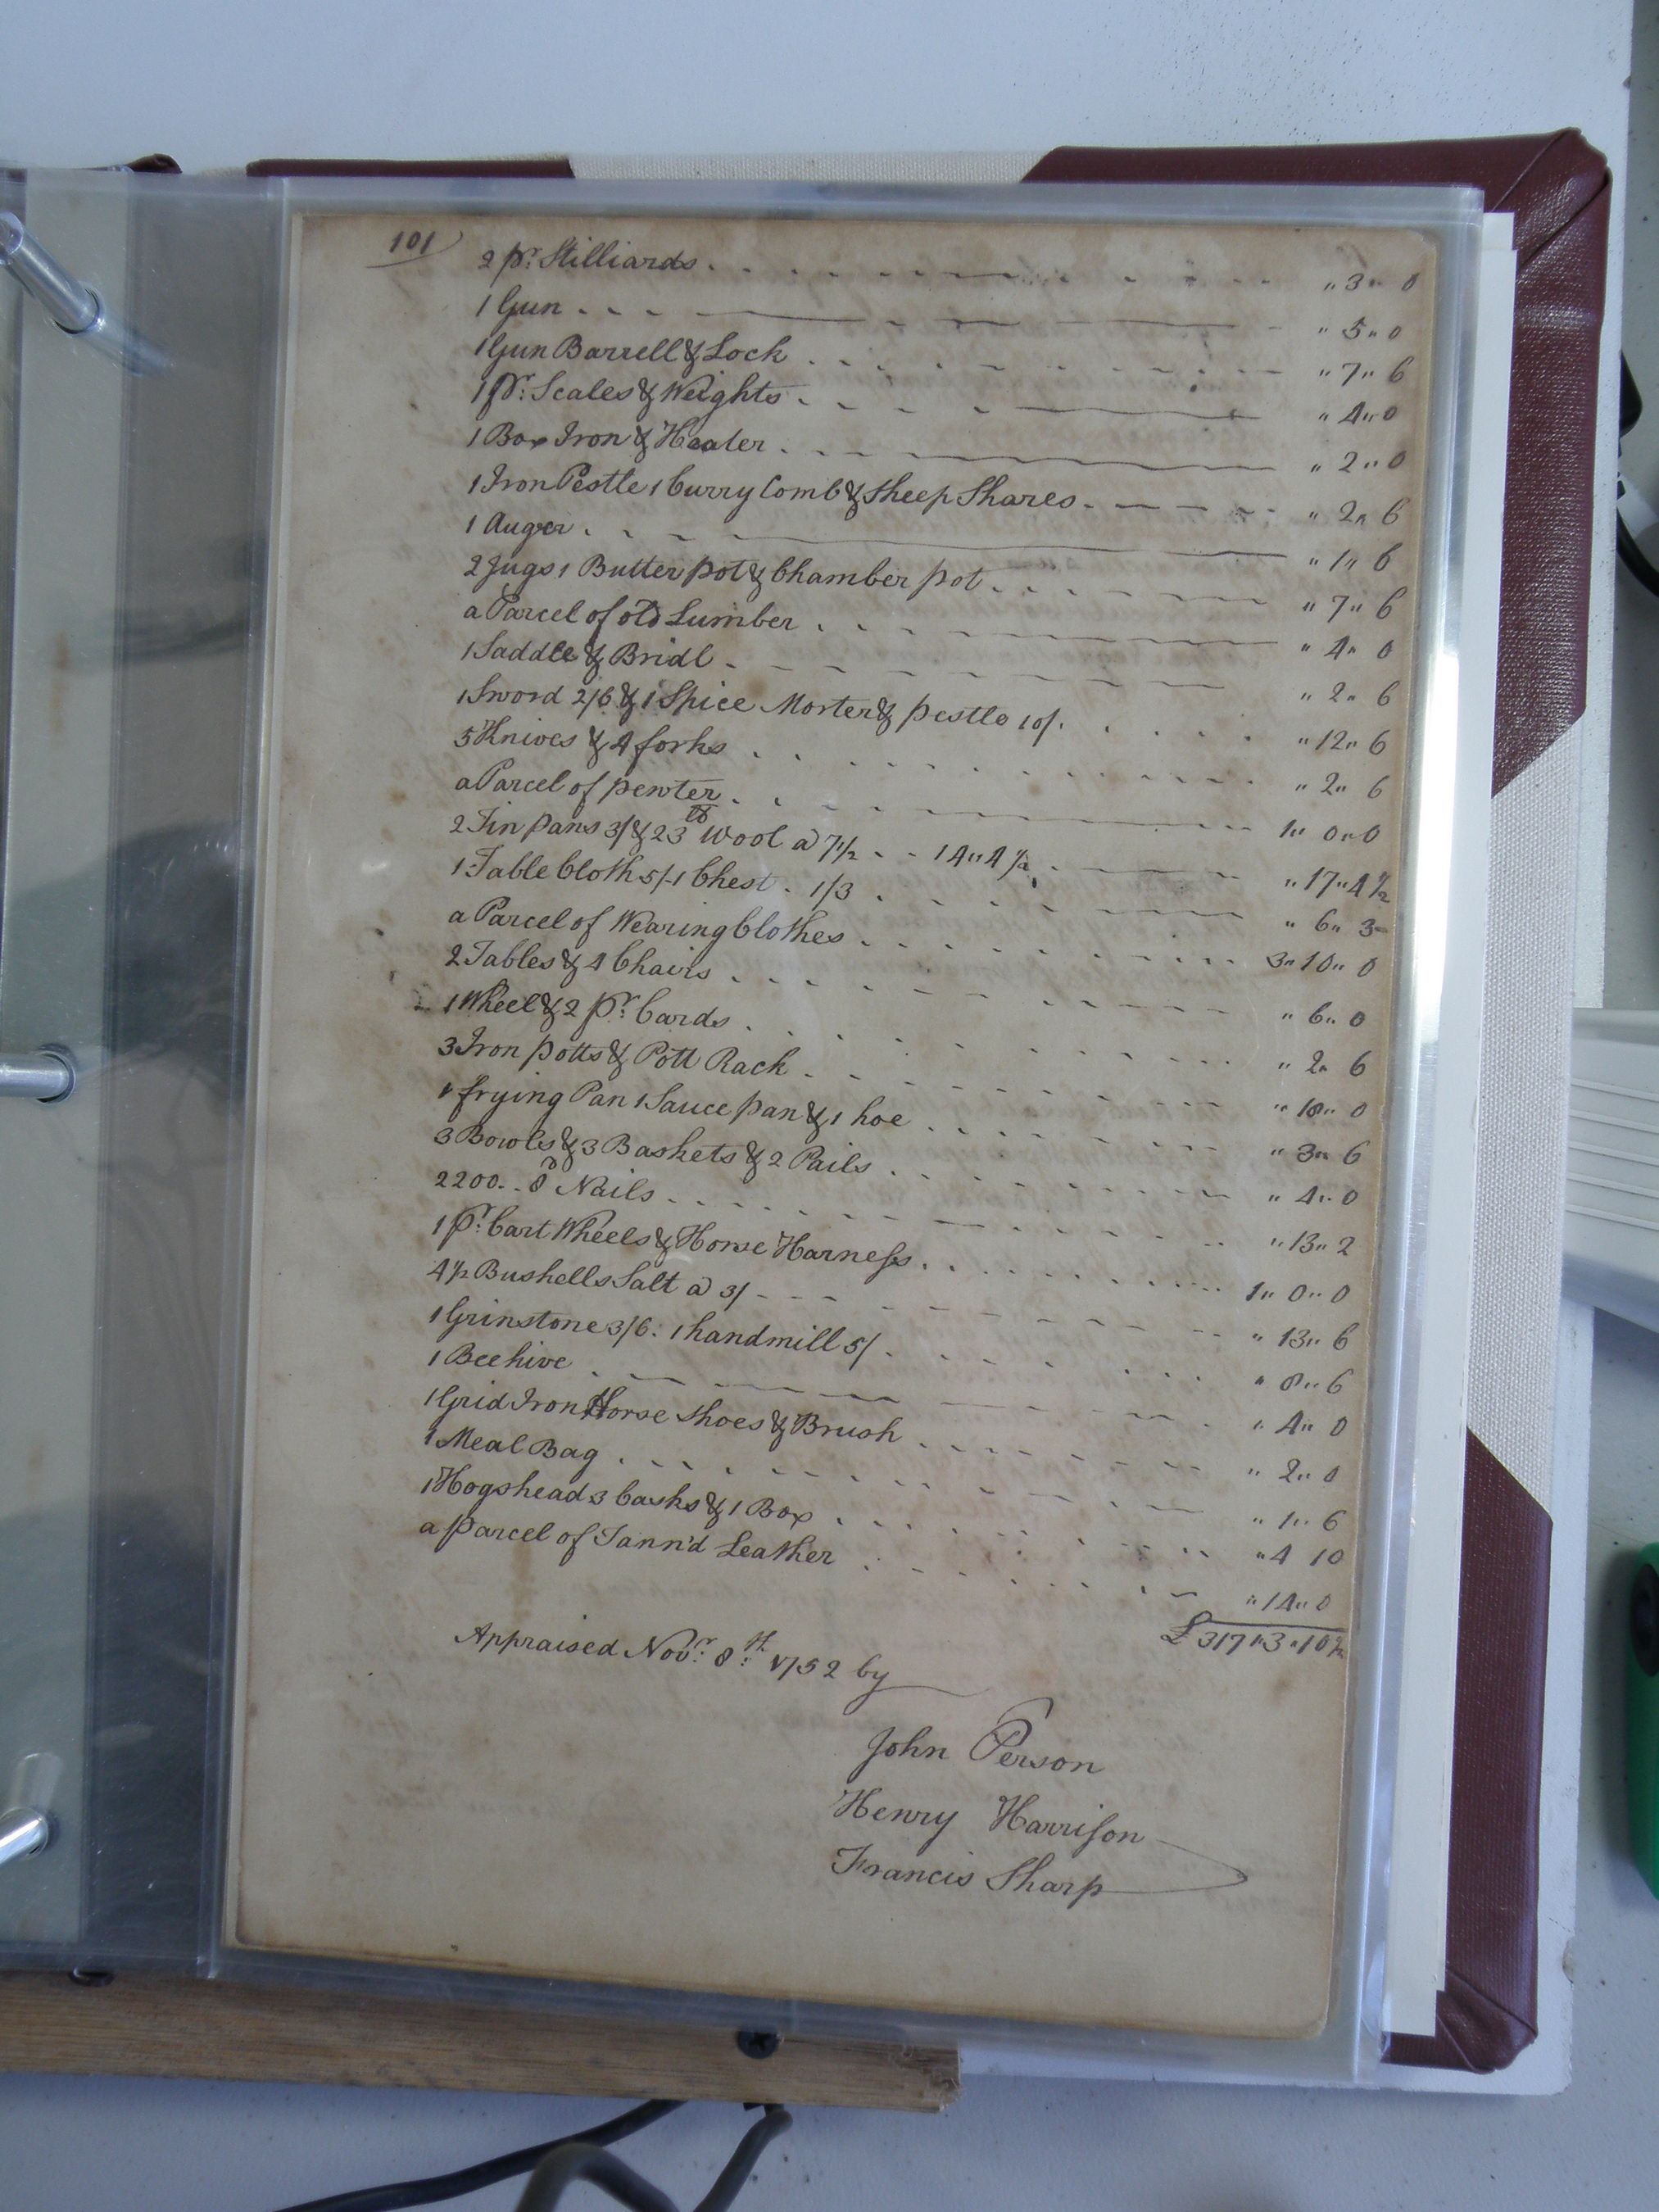 101
2 pr. Stilliards . . . " 3 " 0
1 Gun . . . " 5 " 0
1 Gun Barrell & Lock . . . " 7 " 6
1 pr. Scales & Weights . . . " 4 " 0
1 Box Iron & Heater . . . " 2 " 0
1 Iron Pestle 1 Curry Comb & Sheep Shares . . . " 2 " 6
1 Auger . . . " 1 " 6
2 Jugs 1 Butter pot & Chamber pot . . . " 7 " 6
a Parcel of old Lumber . . . " 4 " 0
1 Saddle & Bridl . . . " 2 " 6
1 Sword 2/6 & 1 Spice Morter & pestle 10/. . . . " 12 " 6
5 Knives & 4 forks . . . " 2 " 6
a Parcel of pewter . . . 1 " 0 " 0
2 Tin pans 3/ & 23 lb Wool a 7½ - - 14 " 4½ . . . " 17 " 4½
1 Table Cloth 5/- 1 Chest . 1/3 . . . " 6 " 3
a Parcel of Wearing Clothes . . . 3 " 10 " 0
2 Tables & 4 Chairs . . . " 6 " 0
1 Wheel & 2 pr. Cards . . . " 2 " 6
3 Iron potts & Pott Rack . . . " 18 " 0
1 frying Pan 1 Sauce pan & 1 hoe . . . " 3 " 6
3 Bowls & 3 Baskets & 2 Pails . . . " 4 " 0
2200 . . 8d Nails . . . " 13 " 2
1 pr. Cart Wheels & Horse Harness . . . 1 " 0 " 0
4½ Bushells Salt a 3/ - - - " 13 " 6
1 Grinstone 3/6 : 1 handmill 5/ . . . " 8 " 6
1 Beehive . . . " 4 " 0
1 Grid Iron Horse Shoes & Brush . . . " 2 " 0
1 Meal Bag . . . " 1 " 6
1 Hogshead 3 Casks & 1 Box . . . " 4 10
a parcel of Tann'd Leather . . . " 14 " 0
£ 317 " 3 " 10½
Appraised Novr. 8th. 1752 by
John Person
Henry Harrison
Francis Sharp